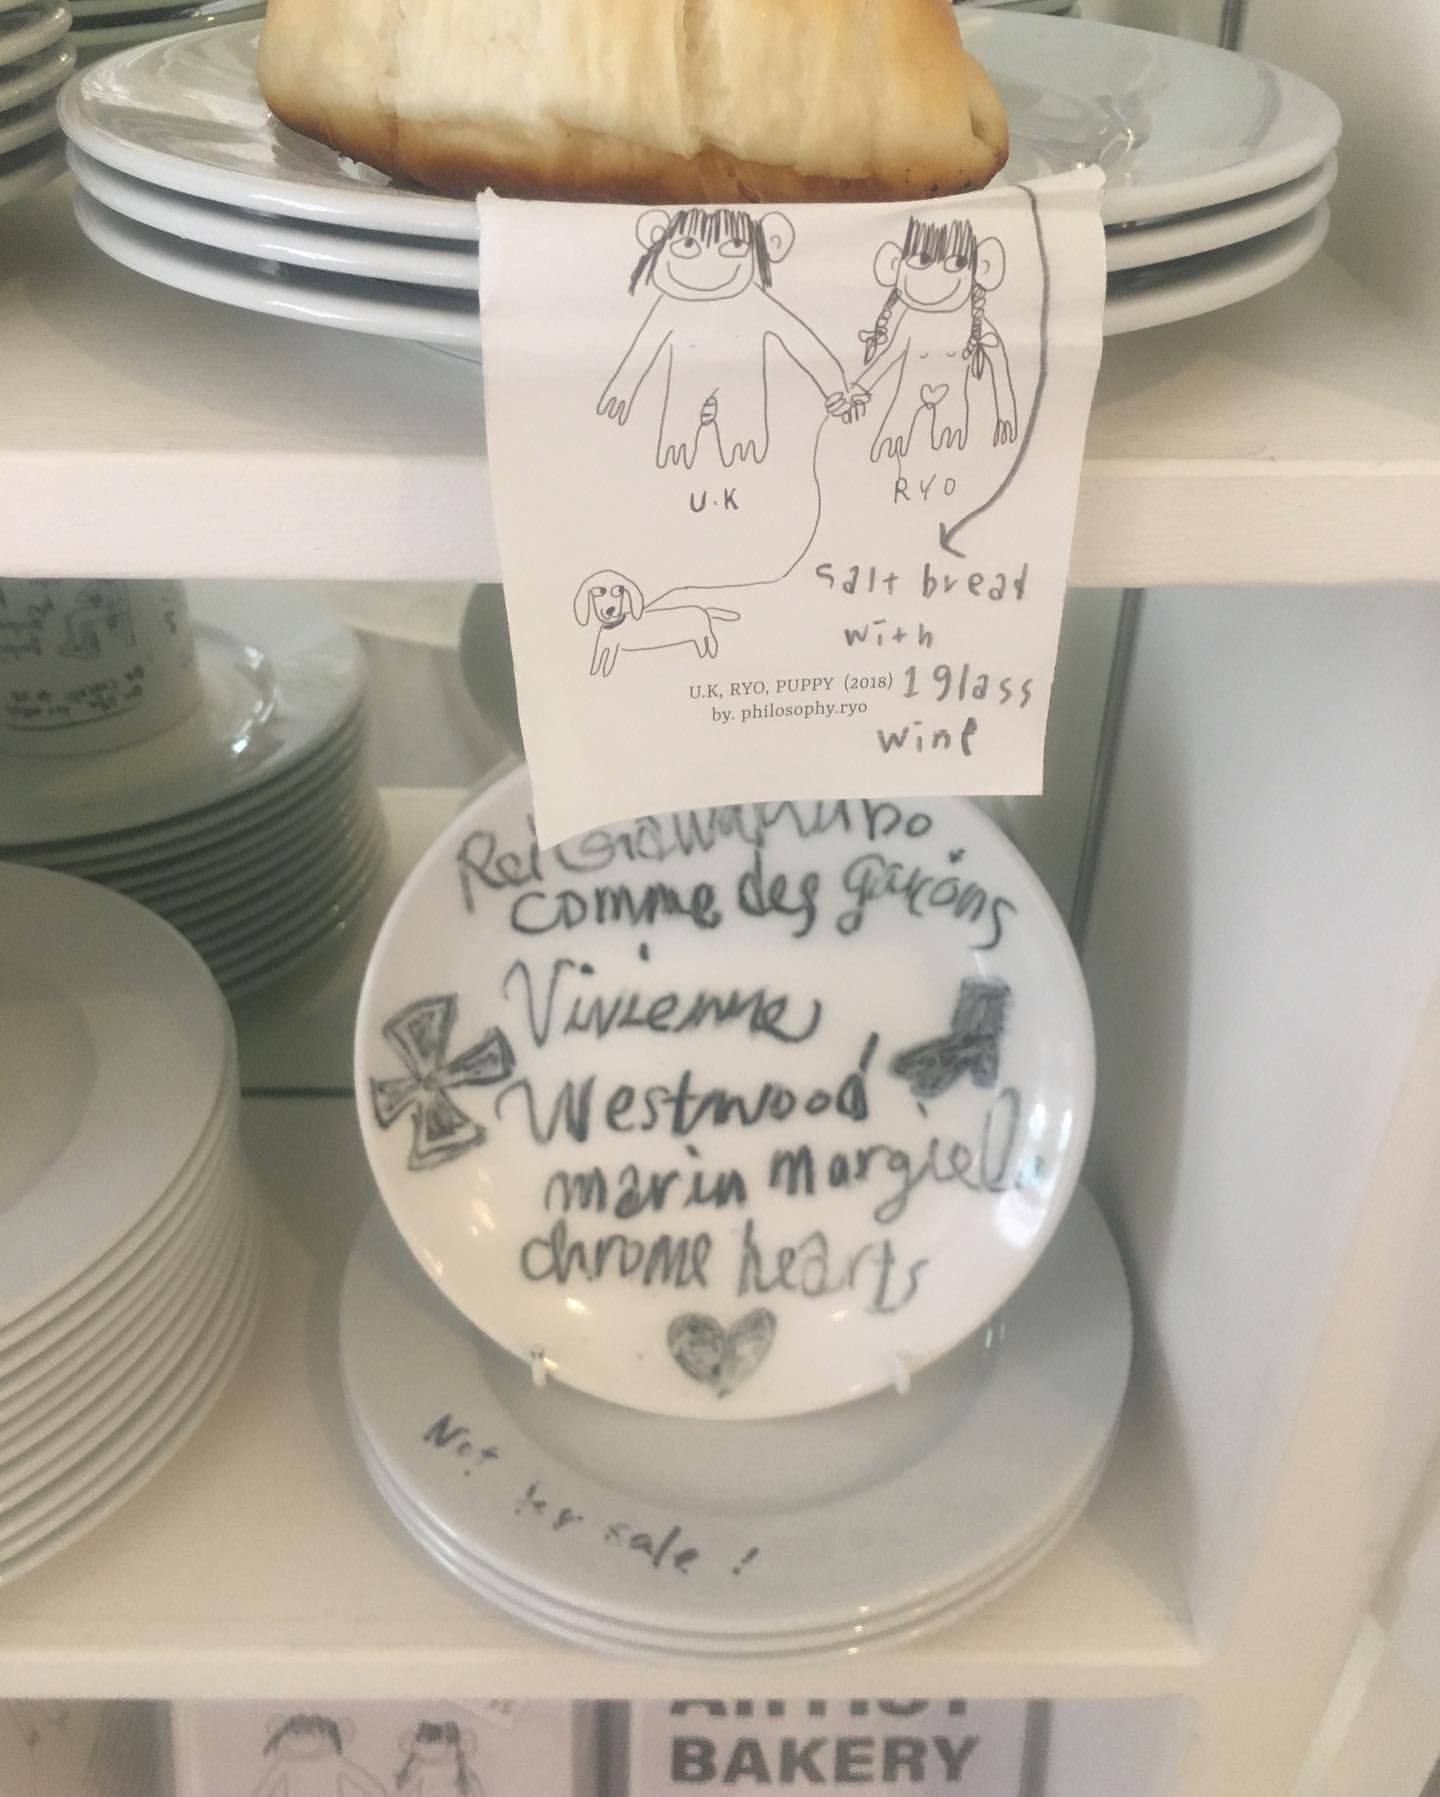 U.K
RYO
salt bread
with
1 glass
wine
U.K, RYO, PUPPY (2018)
by. philosophy.ryo
Rei
comme des garçons
Vivienne
Westwood
marin margiela
chrome hearts
Not for sale !
ARTIST
BAKERY